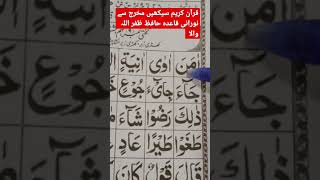 قرآن کریم سیکھیں مخرج سے
نورانی قاعدہ حافظ ظفر اللہ
والا
اٰمَنَ اٰوِیْ اٰنِیَةٍ
جَآءَ جِایْٓءَ جُوْعٍ
ذٰلِكَ رَضُوْا شَآءَ
طَغَوْا طَیْرًا عَادٍ
قَالَ قَوْلٌ كَانَ